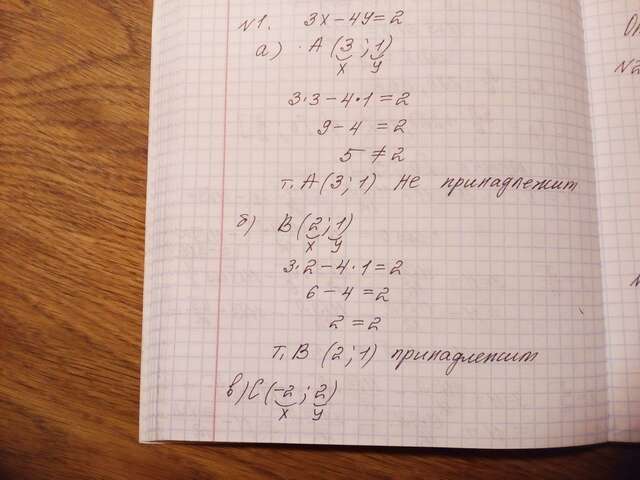 №1. 3x-4y=2
а) · A (3 ; 1)
x y
3·3-4·1=2
9-4 =2
5 ≠ 2
т. A (3; 1) не принадлежит
б) B (2; 1)
x y
3·2-4·1=2
6-4=2
2=2
т. B (2; 1) принадлежит
в) C (-2 ; 2)
x y
№2